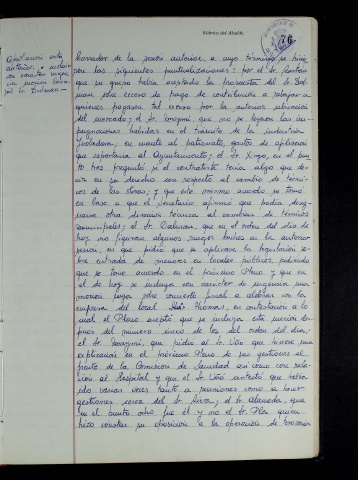 Rúbrica del Alcalde,
76
borrador de la sesión anterior, a cuyo término se hicie
ron las siguientes puntualizaciones: por el Sr.
que su grupo había aceptado la propuesta del Sr.
sobre exceso de pago de contribución a rebajar a
quienes pagasen tal exceso por la anterior ubicación
del mercado; el Sr. que no se leyeron las im-
pugnaciones habidas en el trámite de la industria
en cuanto al patronato, gastos de
que reportaría al Ayuntamiento; el Sr. en el pun
to tres preguntó si el contratista tenía algo que de-
cir en su derecho con respecto al cambio de térmi-
nos de las obras; y que este mismo acuerdo se tomó
en base a que el Secretario afirmó que podía
una otra discusión técnica al cambiar de términos
municipales; el Sr. Dalmau, que en el orden del día de
hoy no figuran algunos ruegos suyos en la anterior
sesión, en que pidió que se aplicase la legislación so-
bre entrada de menores en locales públicos, pidiendo
que se tome acuerdo en el próximo Pleno y que en
el de hoy se incluya con carácter de urgencia una
moción suya sobre convenio fiscal a celebrar con la
empresa del local en contestación a lo
cual el Pleno aceptó que se incluya esta moción des
pues del número cinco de los del orden del día;
el Sr. que pidió al Sr. Vito que hiciese una
explicación en el próximo Pleno de sus gestiones al
frente de la Comisión de Sanidad así como con rela-
ción al Hospital y que el Sr. Vito contestó que había
ido varias veces tanto a reuniones como a hacer
gestiones cerca del Sr. el Sr. Alameda, que
en el punto ocho fue él y no el Sr. Pla quien
hizo constar su oposición a la operación de